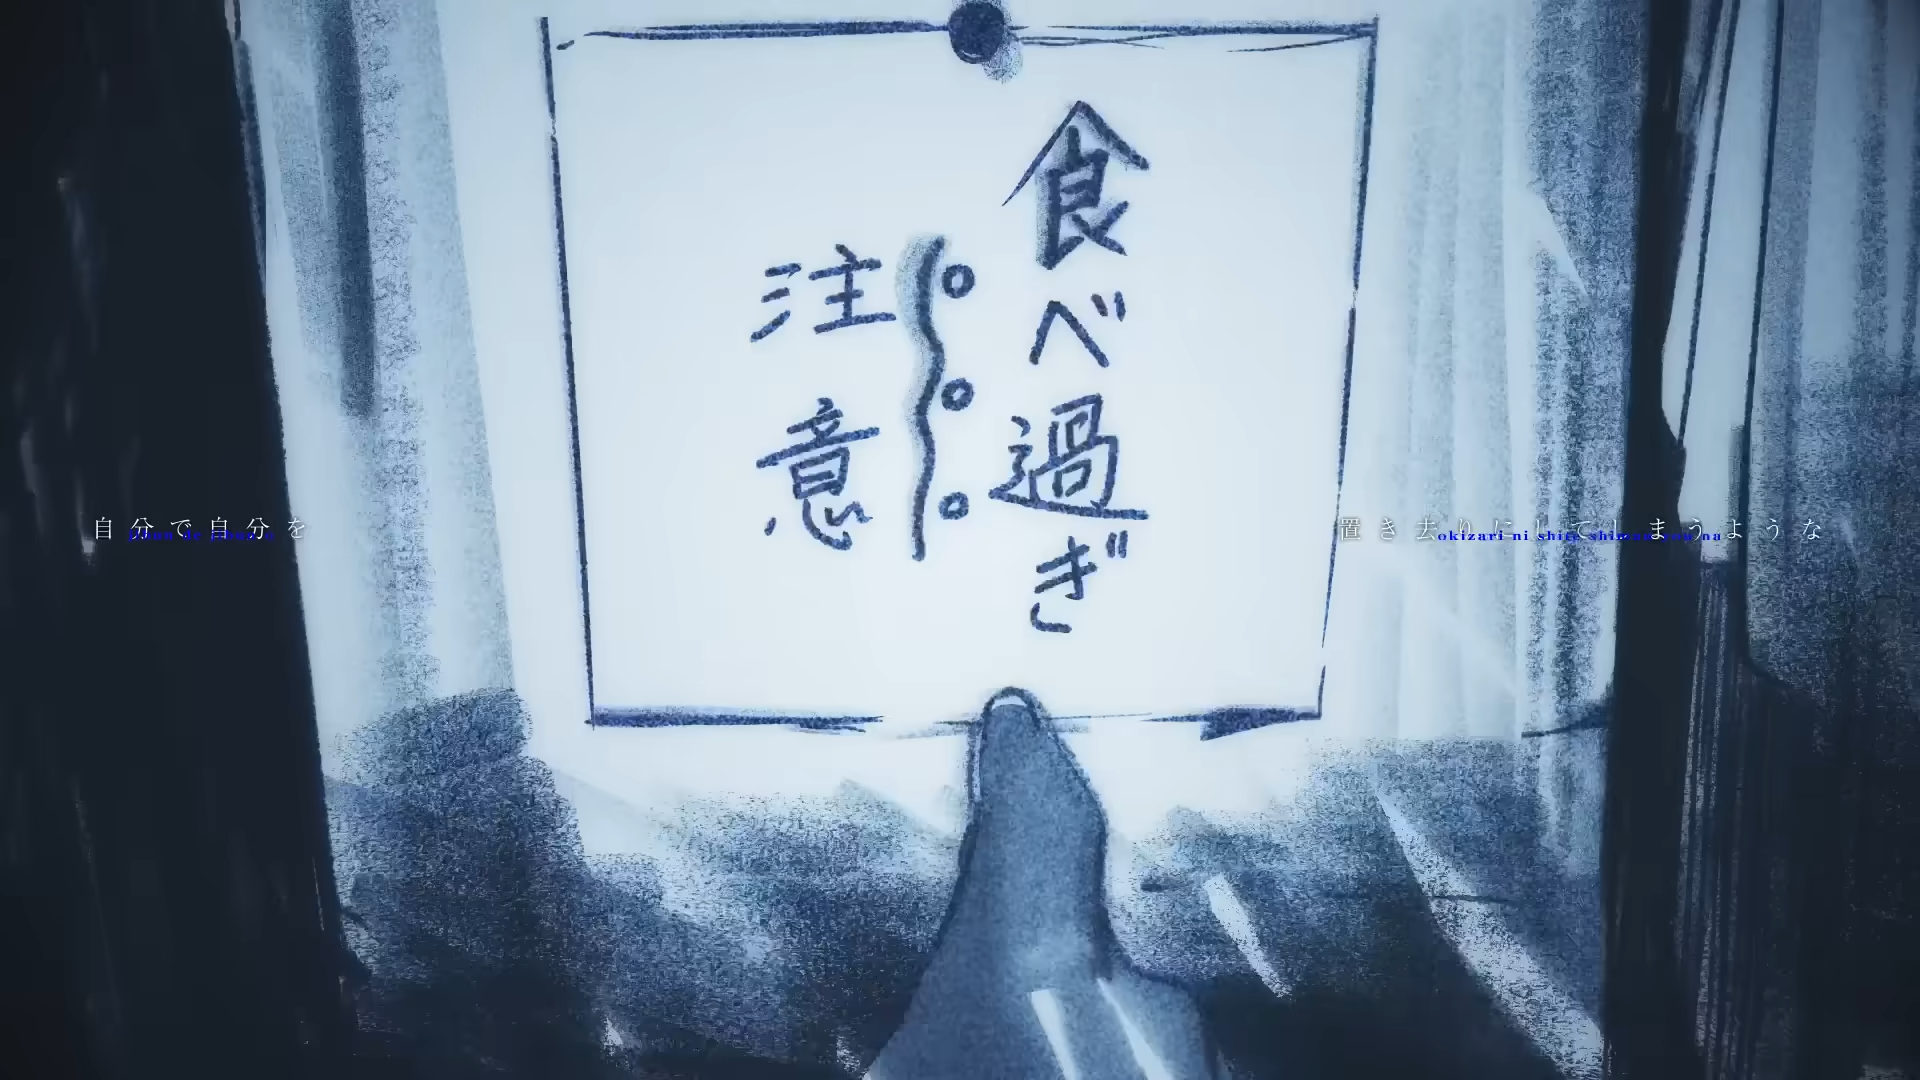 食べ過ぎ
注意
自分で自分を
置き去りにしてしまうような
okizari ni shite shimau you na